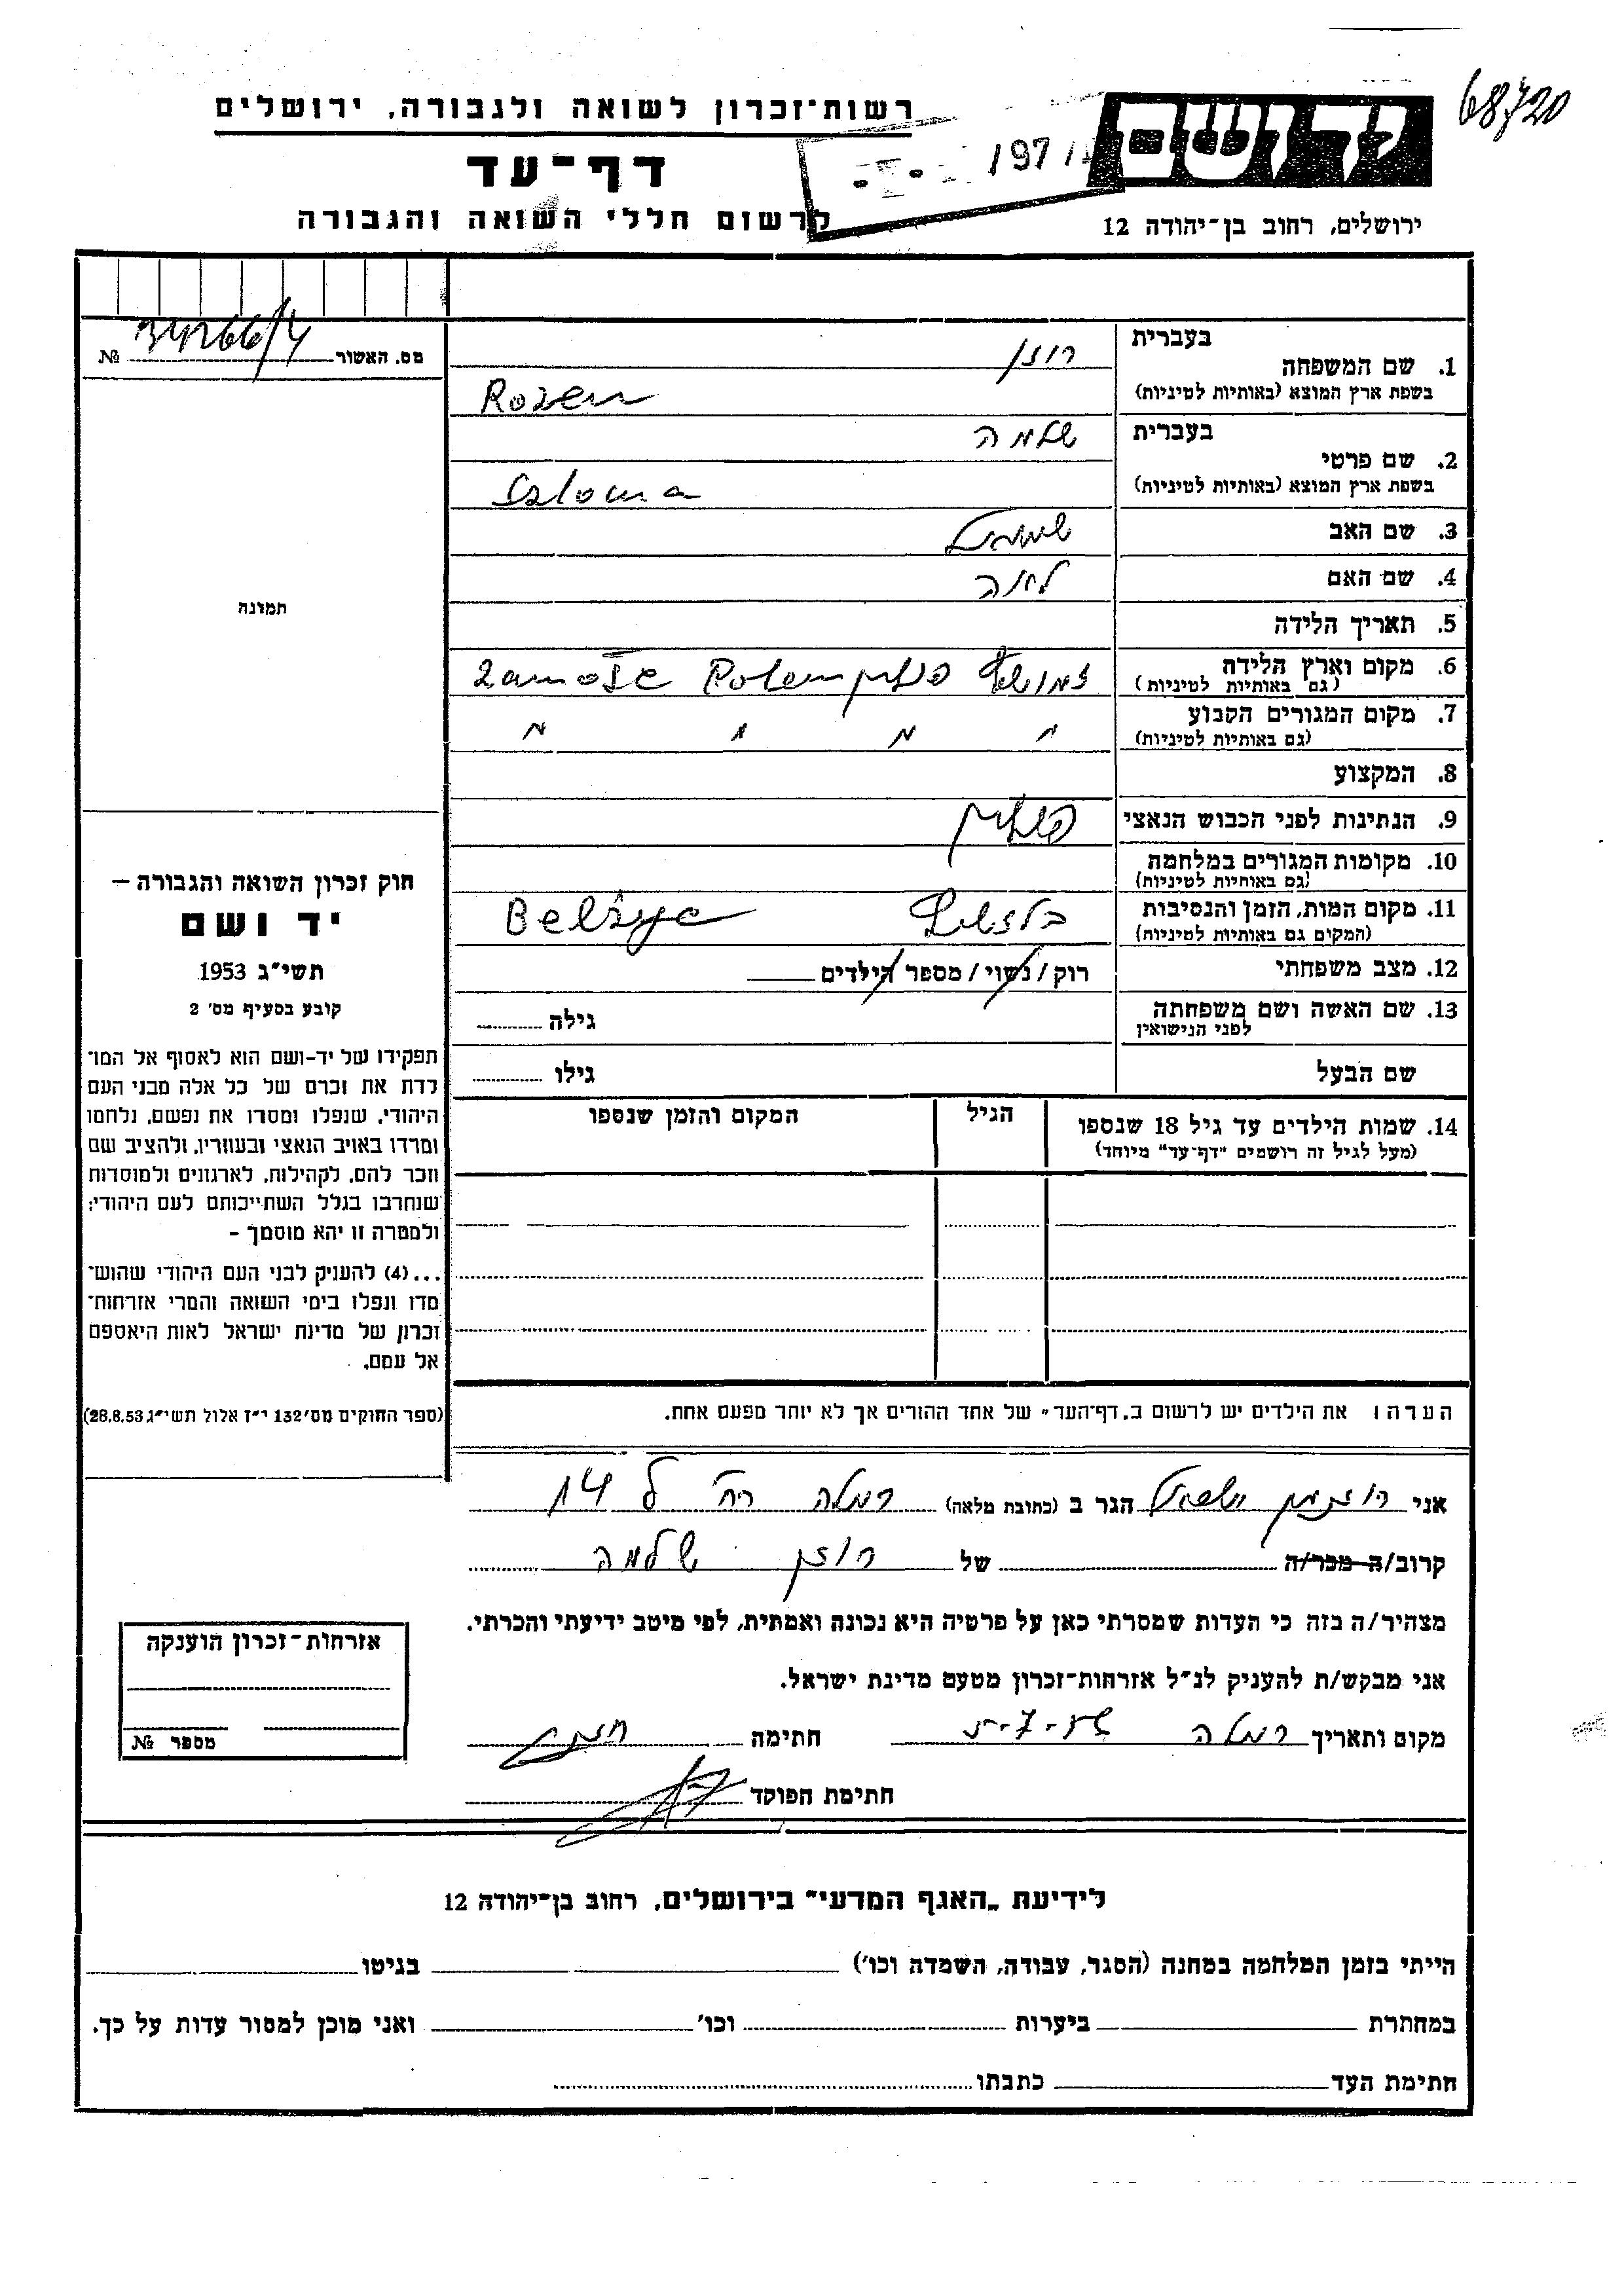 68720
רשות־זכרון לשואה ולגבורה, ירושלים
דף־עד
לרשום חללי השואה והגבורה
197
יד ושם
ירושלים, רחוב בן־יהודה 12
מס. האשור №
1. שם המשפחה
בעברית
רוזן
בשפת ארץ המוצא (באותיות לטיניות)
Rozen
2. שם פרטי
בעברית
שלמה
בשפת ארץ המוצא (באותיות לטיניות)
Szloma
3. שם האב
4. שם האם
5. תאריך הלידה
6. מקום וארץ הלידה
(גם באותיות לטיניות)
פולין
7. מקום המגורים הקבוע
(גם באותיות לטיניות)
" " " "
8. המקצוע
9. הנתינות לפני הכבוש הנאצי
פולין
10. מקומות המגורים במלחמה
(גם באותיות לטיניות)
11. מקום המות, הזמן והנסיבות
(המקום גם באותיות לטיניות)
Bełżyc
12. מצב משפחתי
רוק / נשוי / מספר הילדים
13. שם האשה ושם משפחתה
לפני הנישואין
גילה
שם הבעל
גילו
14. שמות הילדים עד גיל 18 שנספו
(מעל לגיל זה רושמים "דף־עד" מיוחד)
הגיל
המקום והזמן שנספו
הערה: את הילדים יש לרשום ב„דף־העד" של אחד ההורים אך לא יותר מפעם אחת.
תמונה
חוק זכרון השואה והגבורה –
יד ושם
תשי"ג 1953
קובע בסעיף מס' 2
תפקידו של יד-ושם הוא לאסוף אל המו־
לדת את זכרם של כל אלה מבני העם
היהודי, שנפלו ומסרו את נפשם, נלחמו
ומרדו באויב הנאצי ובעוזריו, ולהציב שם
וזכר להם, לקהילות, לארגונים ולמוסדות
שנחרבו בגלל השתייכותם לעם היהודי;
ולמטרה זו יהא מוסמך –
...(4) להעניק לבני העם היהודי שהוש־
מדו ונפלו בימי השואה והמרי אזרחות־
זכרון של מדינת ישראל לאות היאספם
אל עמם.
(ספר החוקים מס' 132 י"ז אלול תשי"ג 28.8.53)
אני הגר ב (כתובת מלאה) רמלה רח' ל 14
קרוב/ה מכר/ה של רוזן שלמה
מצהיר/ה בזה כי העדות שמסרתי כאן על פרטיה היא נכונה ואמתית, לפי מיטב ידיעתי והכרתי.
אני מבקש/ת להעניק לנ"ל אזרחות־זכרון מטעם מדינת ישראל.
מקום ותאריך רמלה חתימה
חתימת הפוקד
אזרחות־זכרון הוענקה
מספר №
לידיעת „האגף המדעי" בירושלים, רחוב בן־יהודה 12
הייתי בזמן המלחמה במחנה (הסגר, עבודה, השמדה וכו') בגיטו
במחתרת ביערות וכו' ואני מוכן למסור עדות על כך.
חתימת העד כתבתו